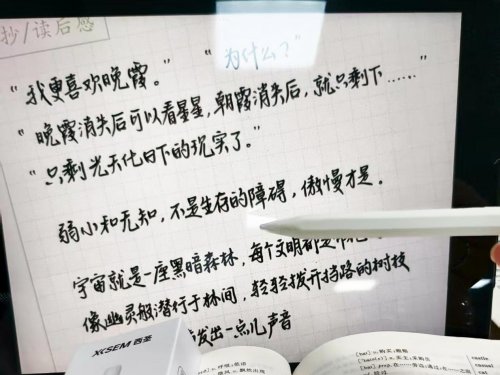 抄/读后感
"我更喜欢晚霞。" "为什么?"
"晚霞消失后可以看星星,朝霞消失后,就只剩下……"
"只剩光天化日下的现实了。"
弱小和无知,不是生存的障碍,傲慢才是。
宇宙就是一座黑暗森林,每个文明都是带
像幽灵般潜行于林间,轻轻拨开挡路的树枝
发出一点儿声音
XSEM 西圣